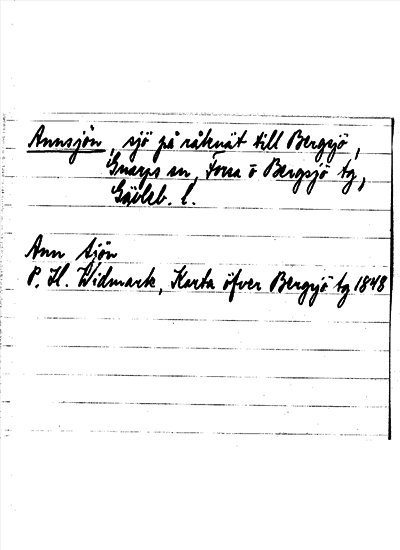 Annsjön, sjö på råknät till Bergsjö,
Gnarps sn, Forsa o Bergsjö tg,
Gävleb. l.
Ann sjön
P. H. Widmark, Karta öfver Bergsjö tg 1848